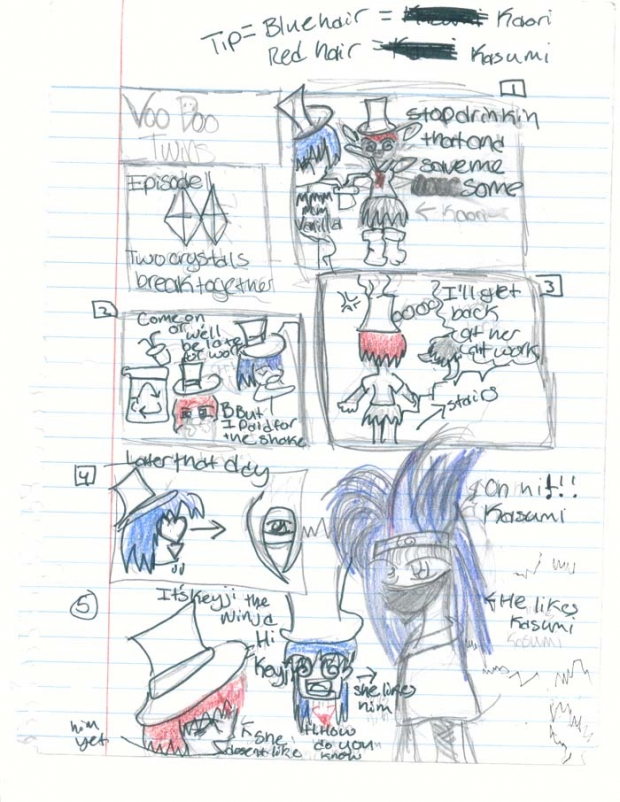 Tip= Blue hair = Kaori
Red hair = Kasumi
Voo Doo
Twins
Episode 1
Two crystals
break together
1
stop drinkin
that and
save me
some
← Kaori
Mmm
mm
Vanilla
2
Come on
or
well
be late
for work
B But
I Paid for
the shake
3
I'll get
back
at her
at work
stairs
4
Later that day
Oh hi!!
Kasumi
5
It's Keyji the
ninja
Hi
Keyji
He likes
Kasumi
Kasumi
she likes
him
she
doesent like
him
yet
How
do you
know